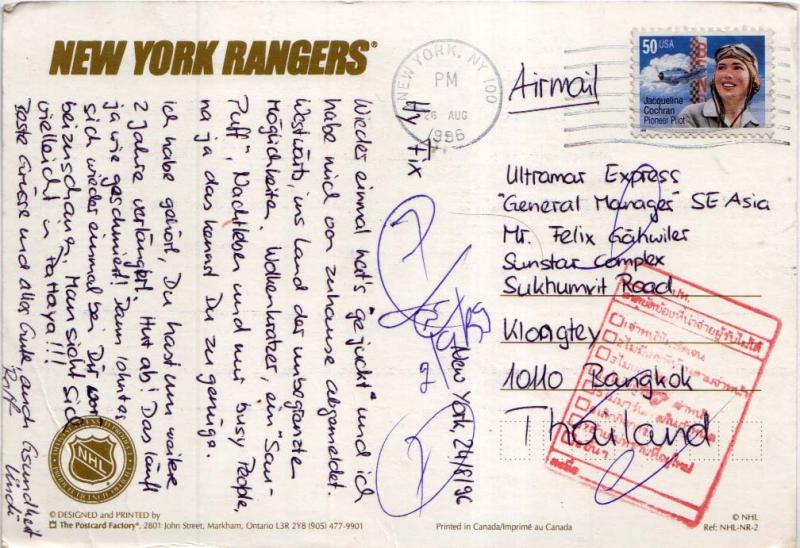 NEW YORK RANGERS®
NEW YORK, NY 100
PM
26 AUG
1996
Airmail
50 USA
Jacqueline
Cochran
Pioneer Pilot
Ultramar Express
"General Manager" SE Asia
Mr. Felix Gähwiler
Sunstar Complex
Sukhumvit Road
Klongtey
10110 Bangkok
Thailand
New York, 24/8/96
Hy Fix
Wieder einmal hat's "gejuckt" und ich
habe mich von zuhause abgemeldet.
Westwärts, ins Land der unbegränzten
Möglichkeiten. Wolkenkratzer, ein "Sau-
Puff", Nachtleben und nur busy People,
na ja das kennst Du zu genüge.
Ich habe gehört, Du hast um weitere
2 Jahre verlängert. Hut ab! Das läuft
ja wie geschmiert! Dann lohnt es
sich wieder einmal bei Dir vor-
beizuschauen. Man sieht sich
vielleicht in Pattaya!!!
Beste Grüsse und alles Gute, auch Gesundheit
NHL
© DESIGNED and PRINTED by
The Postcard Factory®, 2801 John Street, Markham, Ontario L3R 2Y8 (905) 477-9901
Printed in Canada/Imprimé au Canada
© NHL
Ref: NHL-NR-2